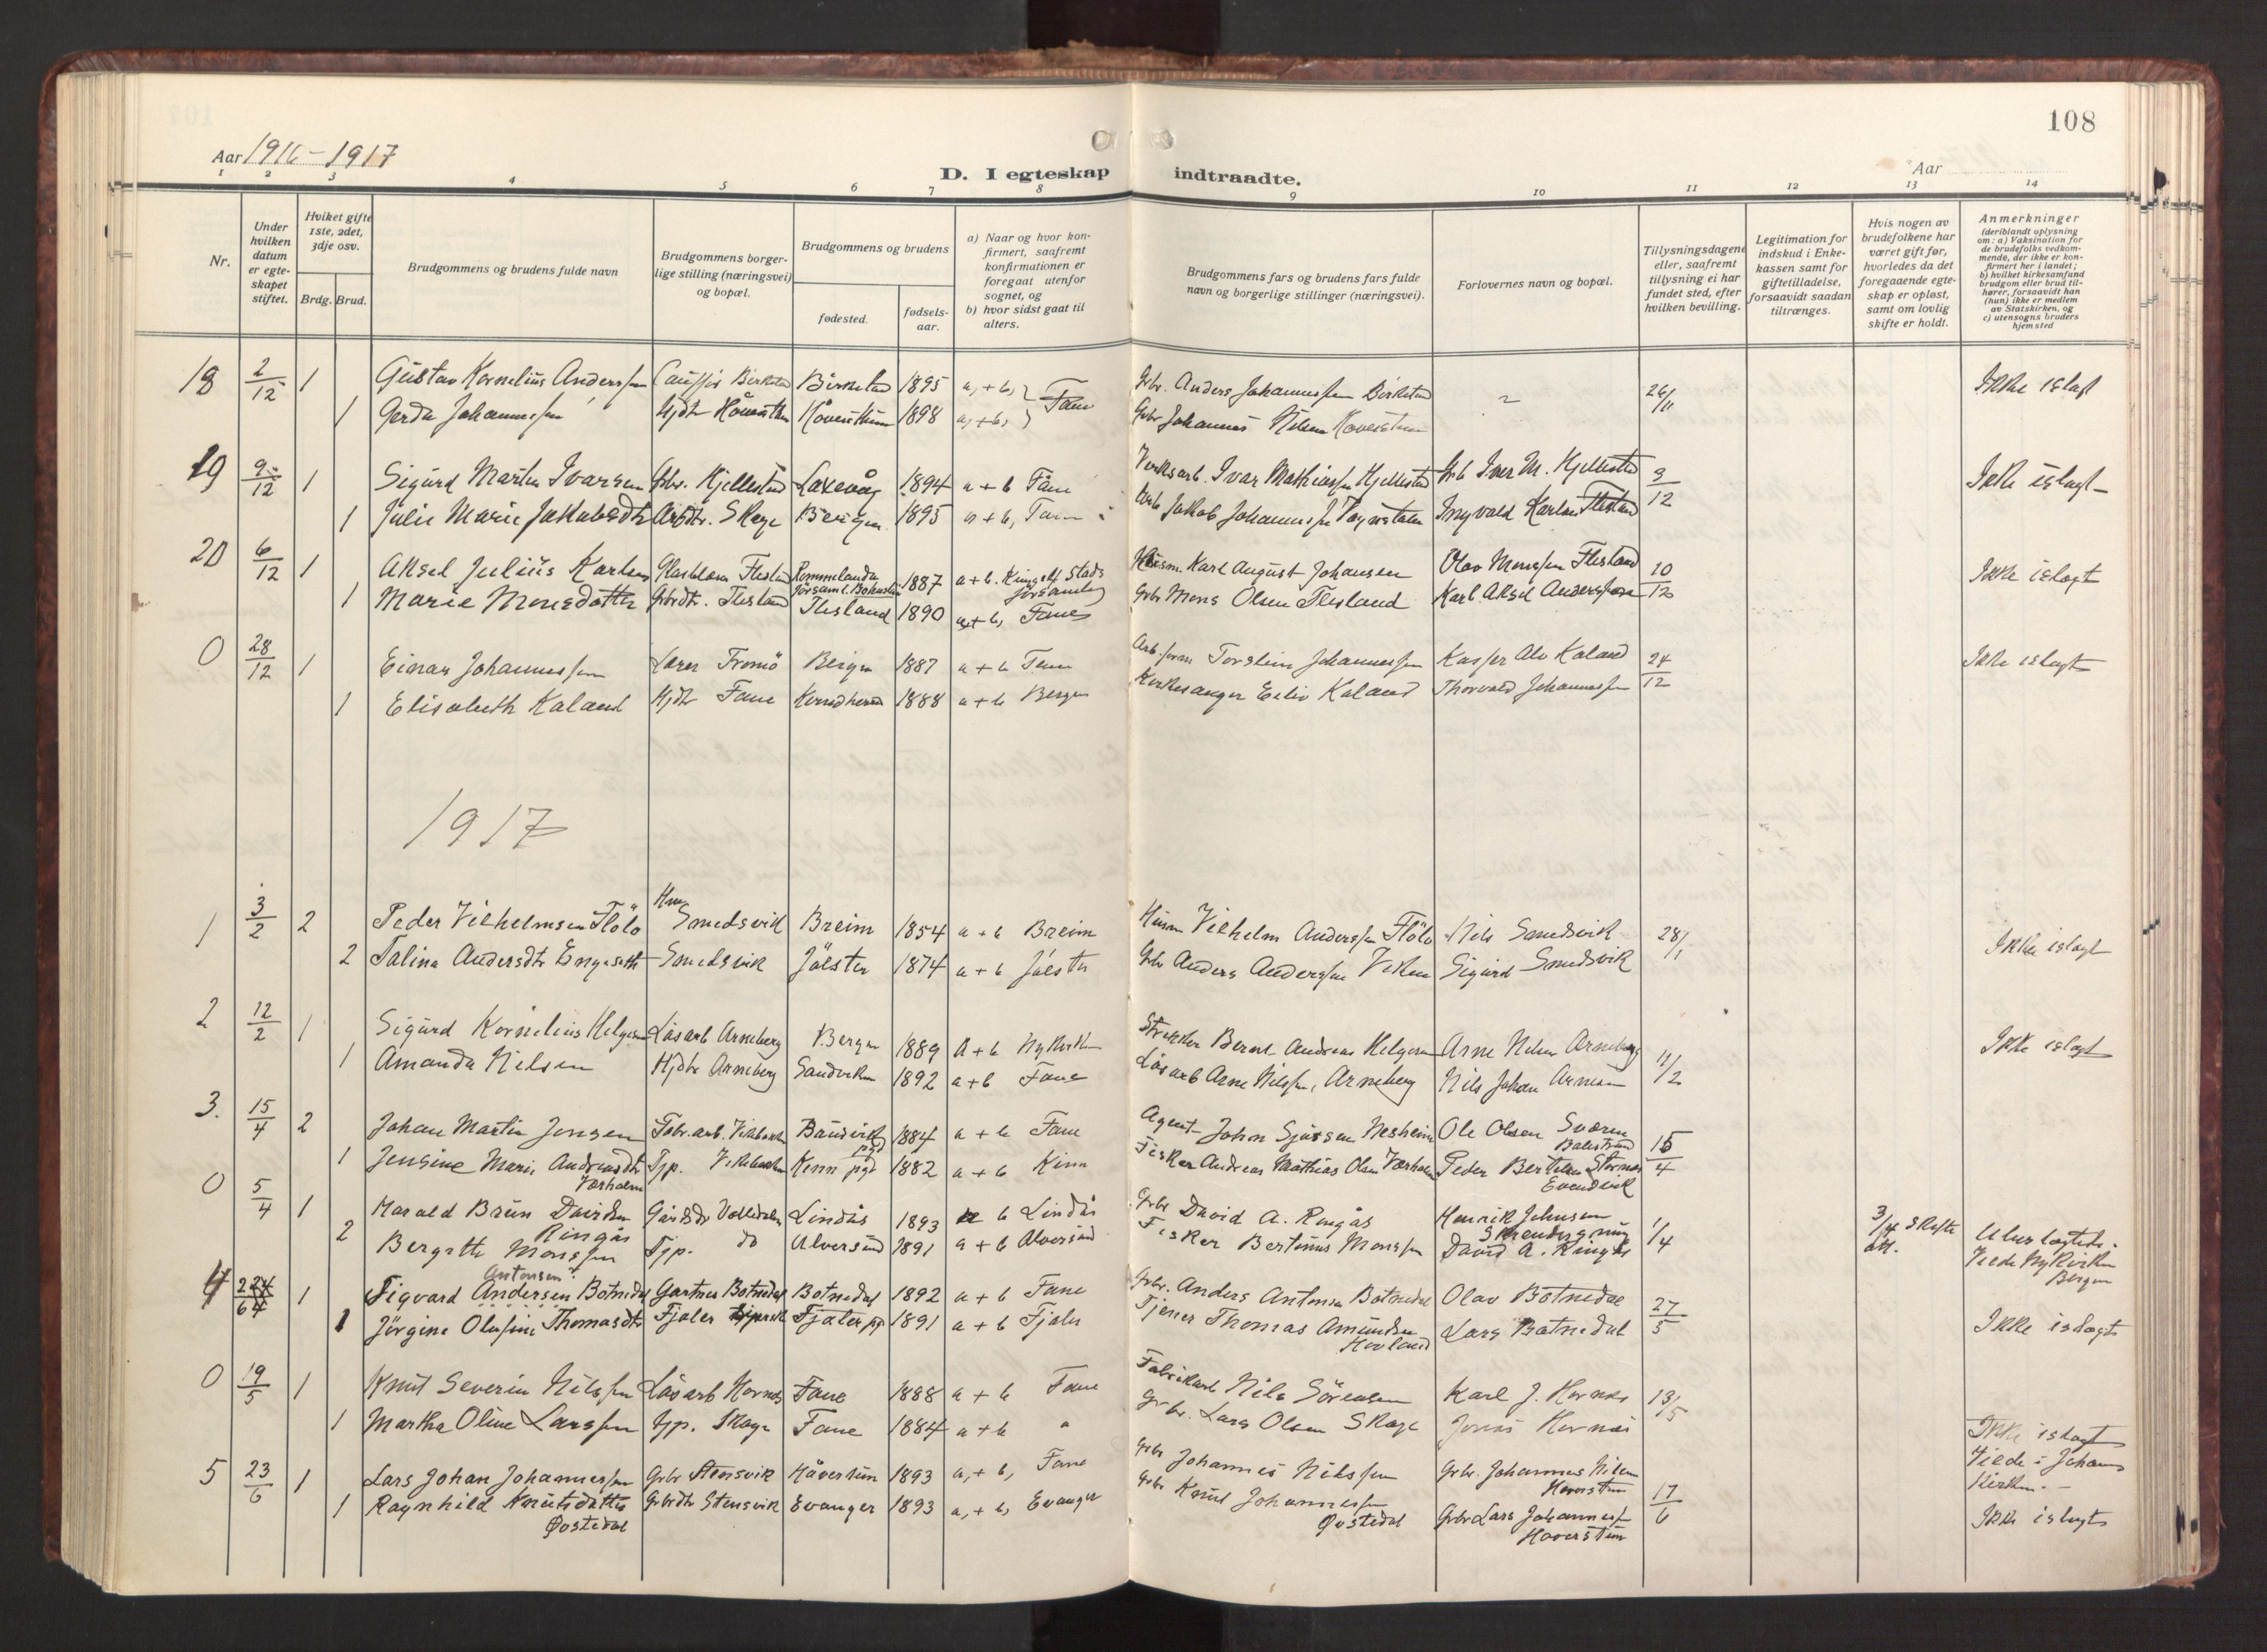 108
Aar 1916-1917
Aar
D. I egteskap indtraadte.
1 2 3 4 5 6 7 8 9 10 11 12 13 14
Nr.
Under hvilken datum er egteskapet stiftet.
Hviket gifte 1ste, 2det, 3dje osv.
Brdg. Brud.
Brudgommens og brudens fulde navn
Brudgommens borgerlige stilling (næringsvei) og bopæl.
Brudgommens og brudens
fødested.
fødselsaar.
a) Naar og hvor konfirmert, saafremt konfirmationen er foregaat utenfor sognet, og
b) hvor sidst gaat til alters.
Brudgommens fars og brudens fars fulde navn og borgerlige stillinger (næringsvei).
Forlovernes navn og bopæl.
Tillysningsdagene eller, saafremt tillysning ei har fundet sted, efter hvilken bevilling.
Legitimation for indskud i Enkekassen samt for giftetilladelse, forsaavidt saadan tiltrænges.
Hvis nogen av brudefolkene har været gift før, hvorledes da det foregaaende egteskap er opløst, samt om lovlig skifte er holdt.
Anmerkninger (deriblandt oplysning om: a) Vaksination for de brudefolks vedkommende, der ikke er konfirmert her i landet; b) hvilket kirkesamfund brudgom eller brud tilhører, forsaavidt han (hun) ikke er medlem av Statskirken, og c) utensogns bruders hjemsted
18 2/12 1 Gustav Kornelius Anderssen Birkeland 1895 a, + b, Fane Gbr. Anders Johannessen Birkeland 26/11 Ikke islagt
1 Gerda Johannessen 1898 a, + b, Gbr Johannes Nilsen
19 9/12 1 Sigurd Martin Ivarsen Gbr. Kjellestad Laxevåg 1894 a + b Fane Ivar Mathiassen Kjellestad Gbr Iver M. Kjellestad 9/12 Ikke islagt
1 Julie Marie Jakobsdtr Skage Bergen 1895 a + b, Fane Jakob Johannessen Ingvald Karlsen Flesland
20 6/12 1 Aksel Julius Karlsen Flesland 1887 a + b. Kungelf Stads församling Karl August Johansen Olav Monssen Flesland 10/12 Ikke islagt
1 Marie Monsdatter Gbrdtr. Flesland Flesland 1890 a, + b, Fane Gbr Mons Olsen Flesland Karl Aksel Anderssen
0 28/12 1 Einar Johannessen Lærer Tromö Bergen 1887 a + b Fane Torstein Johannessen Kasper Alv Kaland 24/12 Ikke islagt
1 Elisabeth Kaland Hjdtr Fane Kvindherred 1888 a + b Bergen Kirkesanger Eiliv Kaland Thorvald Johannessen
1917
1 3/2 2 Peder Vilhelmsen Flölo Hm Smedsvik Breim 1854 a + b Breim Husm Vilhelm Anderssen Flölo Nils Smedsvik 28/1 Ikke islagt
2 Talina Andersdtr Engeseth Smedsvik Jölster 1874 a + b Jölster Gbr Anders Anderssen Viken Sigurd Smedsvik
2 12/2 1 Sigurd Kornelius Helgesen Läsarb Arneberg Bergen 1889 a + b Nykirken Bernt Andreas Helgesen Arne Nilsen Arneberg 11/2 Ikke islagt
1 Amanda Nilsen Hjdtr Arneberg Sandviken 1892 a + b Fane Läsarb Arne Nilssen, Arneberg Nils Johan Arnesen
3. 15/4 2 Johan Martin Jensen Fabr. arb. 1884 a + b Fane Agent Johan Sjursen Nesheim Ole Olsen Sværen Balestrand 15/4
1 Jensine Marie Andreasdtr Værholm Tjp. Kinn pgd 1882 a + b Kinn Fisker Andreas Mathias Olsen Værholm Peder Bertelsen Evendvik
0 5/4 1 Harald Brun Davidsen Ringås Lindås 1893 b Lindås Gbr David A. Ringås Henrik Johnsen 1/4 3/4 Skifte att. Viede Nykirken Bergen
2 Bergitte Monssen Tjp. do Alversund 1891 a + b Alversund Fisker Bertinus Monssen David A. Ringås
4 1 Sigvard Andersen Botnedal Antonsen? Gartner Botnedal Botnedal 1892 a + b Fane Gbr. Anders Antonsen Botnedal Olav Botnedal 27/5 Ikke islagt
1 Jörgine Olufine Thomasdtr Fjaler Fjaler pgd 1891 a + b Fjaler Tjener Thomas Amundsen Hovland Lars Botnedal
0 19/5 1 Knut Severin Nilssen Läsarb Hornes Fane 1888 a + b Fane Fabrikarb Nils Sörensen Karl J. Hornes 13/5 Ikke islagt
1 Martha Oline Larssen Tjp. Skage Fane 1884 a + b " Gbr. Lars Olsen Skage Jonas Hornes Viede i Johans Kirken.
5 23/6 1 Lars Johan Johannessen Gbr Stensvik Håverstun 1893 a, + b, Fane Gbr Johannes Nilssen Gbr. Johannes Nilsen Haverstun 17/6 Ikke islagt
1 Ragnhild Knutsdatter Øvstedal Gbrdtr Stensvik Evanger 1893 a, + b, Evanger Gbr Knut Johannessen Øvstedal Gbr Lars Johannessen Haverstun